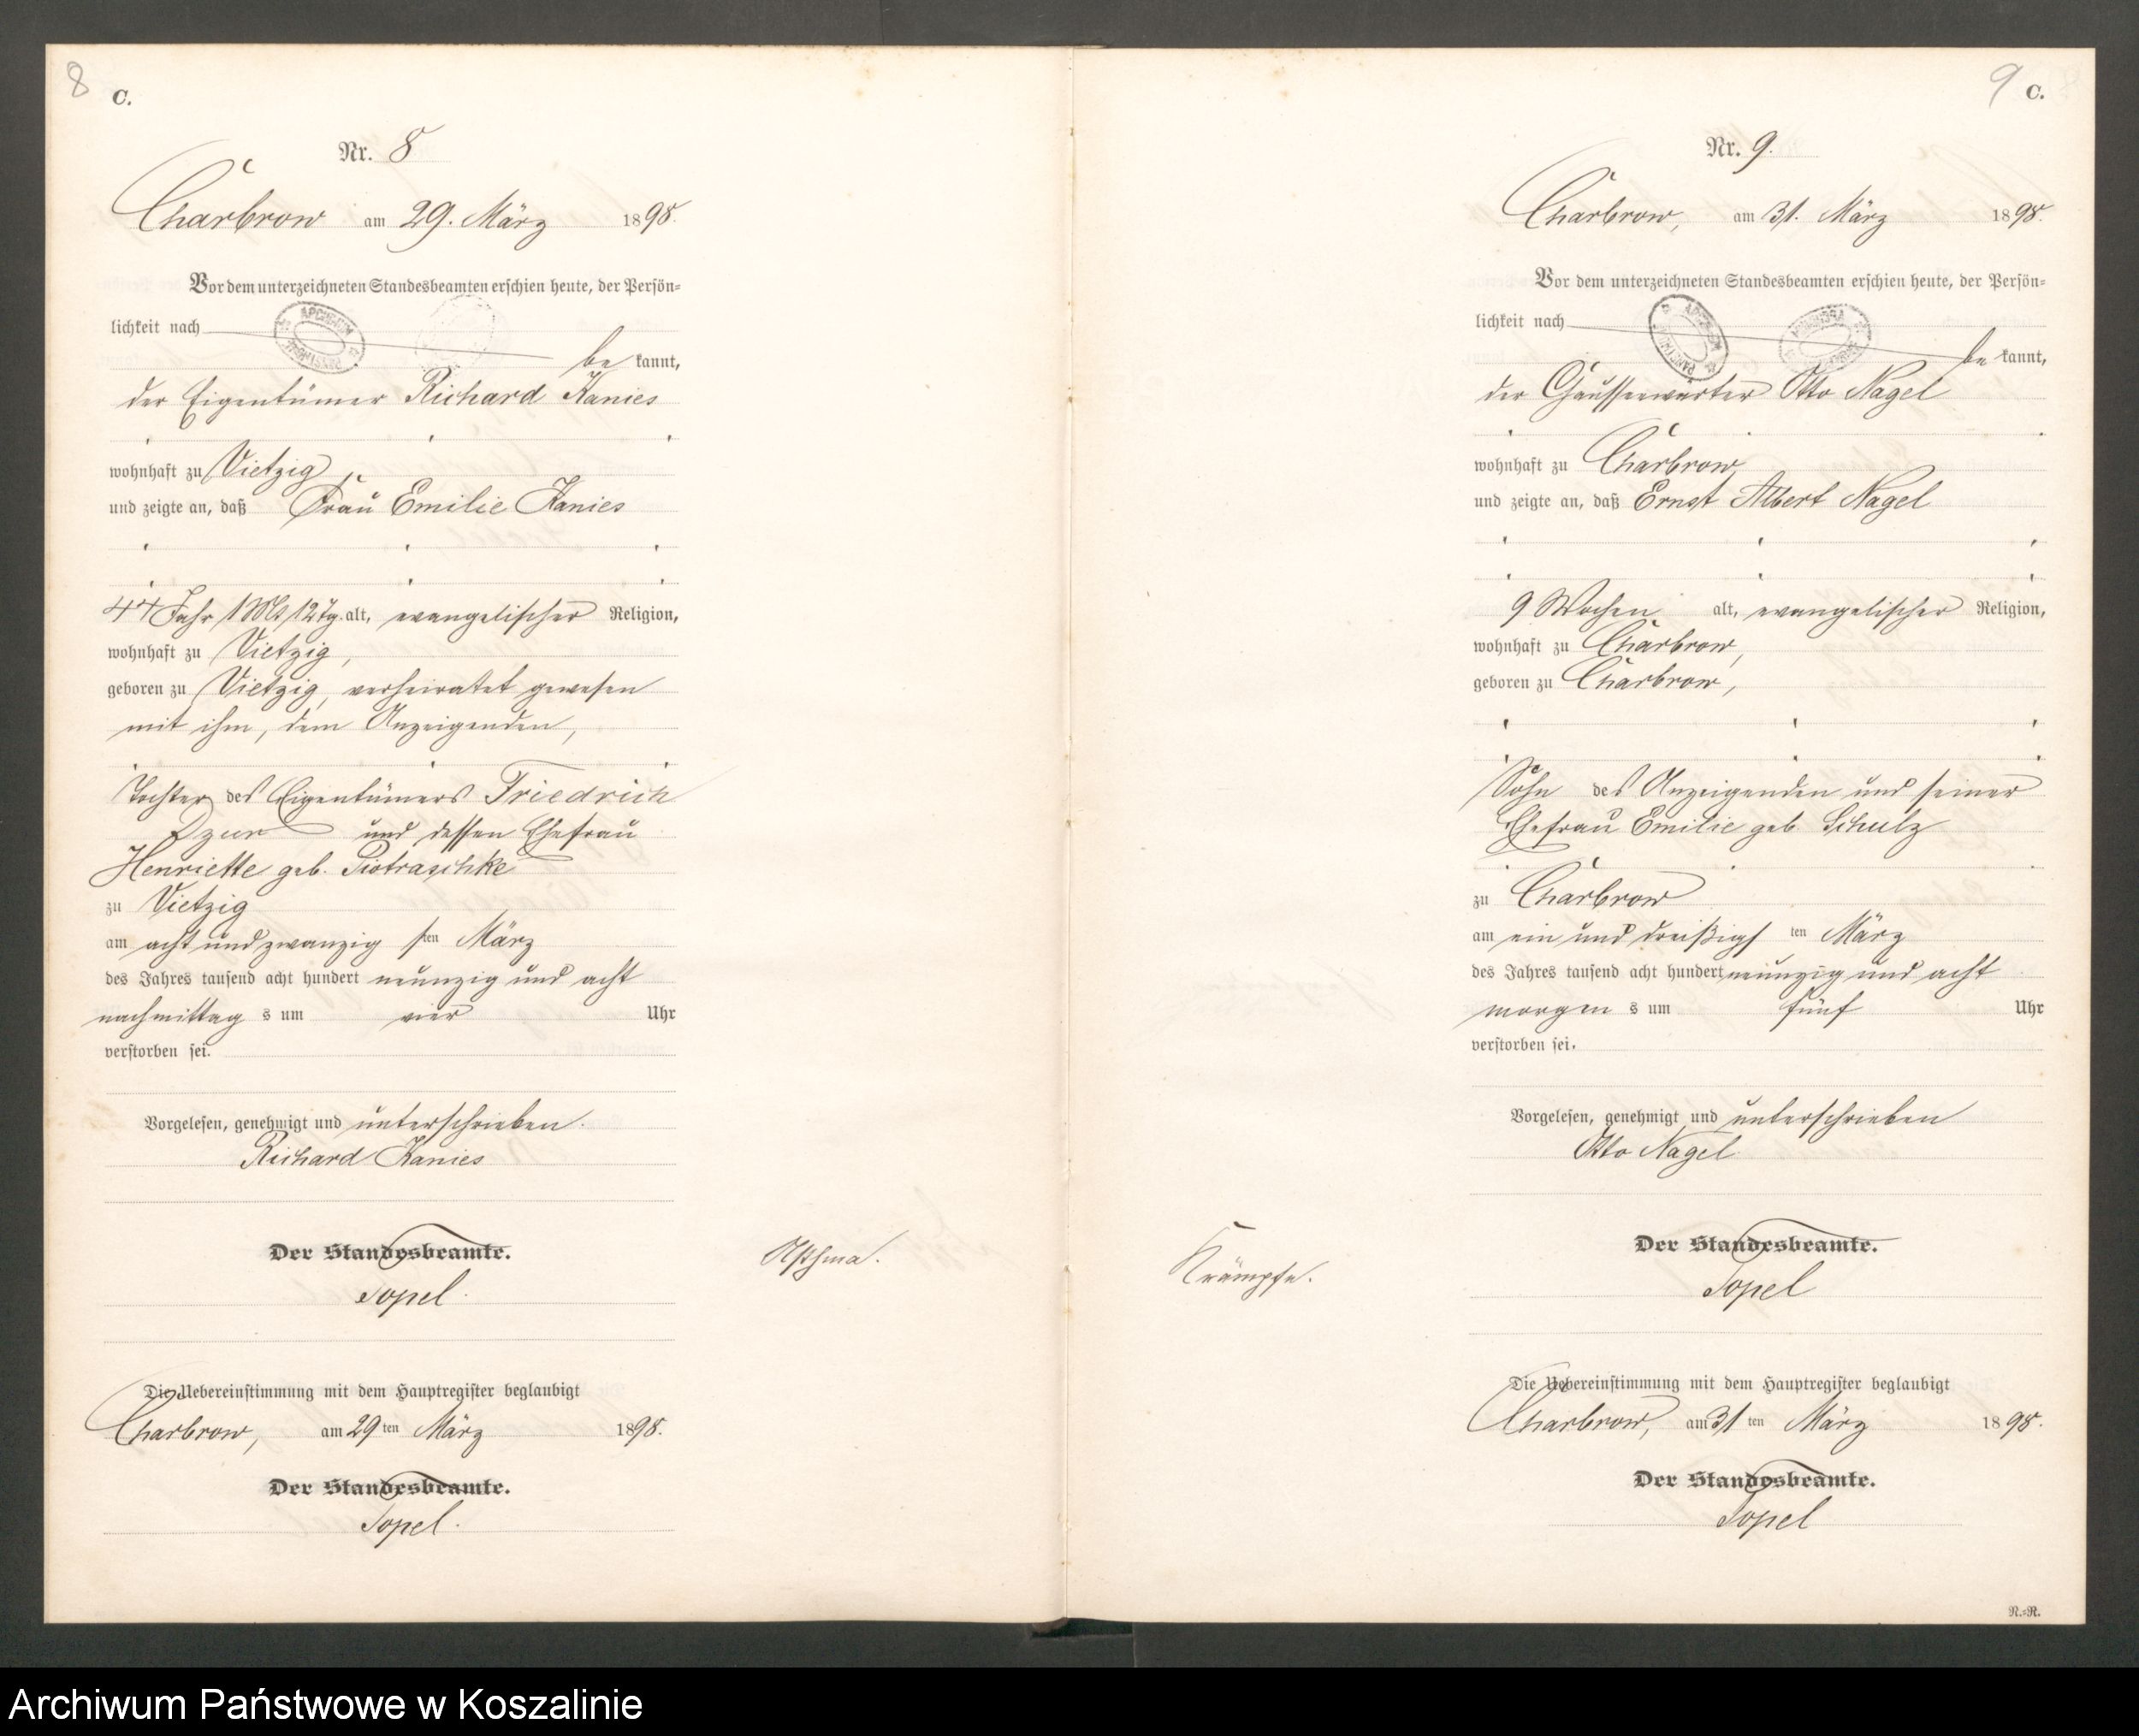 8
C.
Nr. 8
Charbrow am 29. März 1898.
Vor dem unterzeichneten Standesbeamten erschien heute, der Persön-
lichkeit nach
be kannt,
der Eigentümer Richard Kanies
wohnhaft zu Vietzig,
und zeigte an, daß Frau Emilie Kanies
44 Jahr 1 Mt. 12 Tg. alt, evangelischer Religion,
wohnhaft zu Vietzig,
geboren zu Vietzig, verheiratet gewesen
mit ihm, dem Anzeigenden,
Tochter des Eigentümers Friedrich
Dzur und dessen Ehefrau
Henriette geb. Piotraschke
zu Vietzig
am acht und zwanzig sten März
des Jahres tausend acht hundert neunzig und acht
nachmittag s um vier Uhr
verstorben sei.
Vorgelesen, genehmigt und unterschrieben.
Richard Kanies
Der Standesbeamte.
Topel.
Asthma.
Die Uebereinstimmung mit dem Hauptregister beglaubigt
Charbrow, am 29 ten März 1898.
Der Standesbeamte.
Topel.
9
C.
Nr. 9.
Charbrow, am 31. März 1898.
Vor dem unterzeichneten Standesbeamten erschien heute, der Persön-
lichkeit nach
be kannt,
der Chausseewärter Otto Nagel
wohnhaft zu Charbrow
und zeigte an, daß Ernst Albert Nagel
9 Wochen alt, evangelischer Religion,
wohnhaft zu Charbrow,
geboren zu Charbrow,
Sohn des Anzeigenden und seiner
Ehefrau Emilie geb Schulz
zu Charbrow
am ein und dreißigs ten März
des Jahres tausend acht hundert neunzig und acht
morgen s um fünf Uhr
verstorben sei.
Vorgelesen, genehmigt und unterschrieben
Otto Nagel
Der Standesbeamte.
Topel
Krämpfe.
Die Uebereinstimmung mit dem Hauptregister beglaubigt
Charbrow, am 31 ten März 1898.
Der Standesbeamte.
Topel
R.=R.
Archiwum Państwowe w Koszalinie